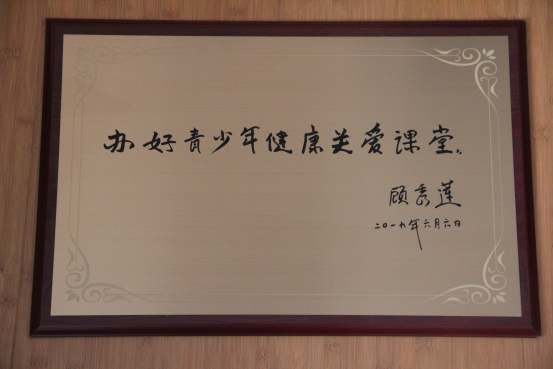 办好青少年健康关爱课堂。
顾秀莲
二〇一九年六月六日